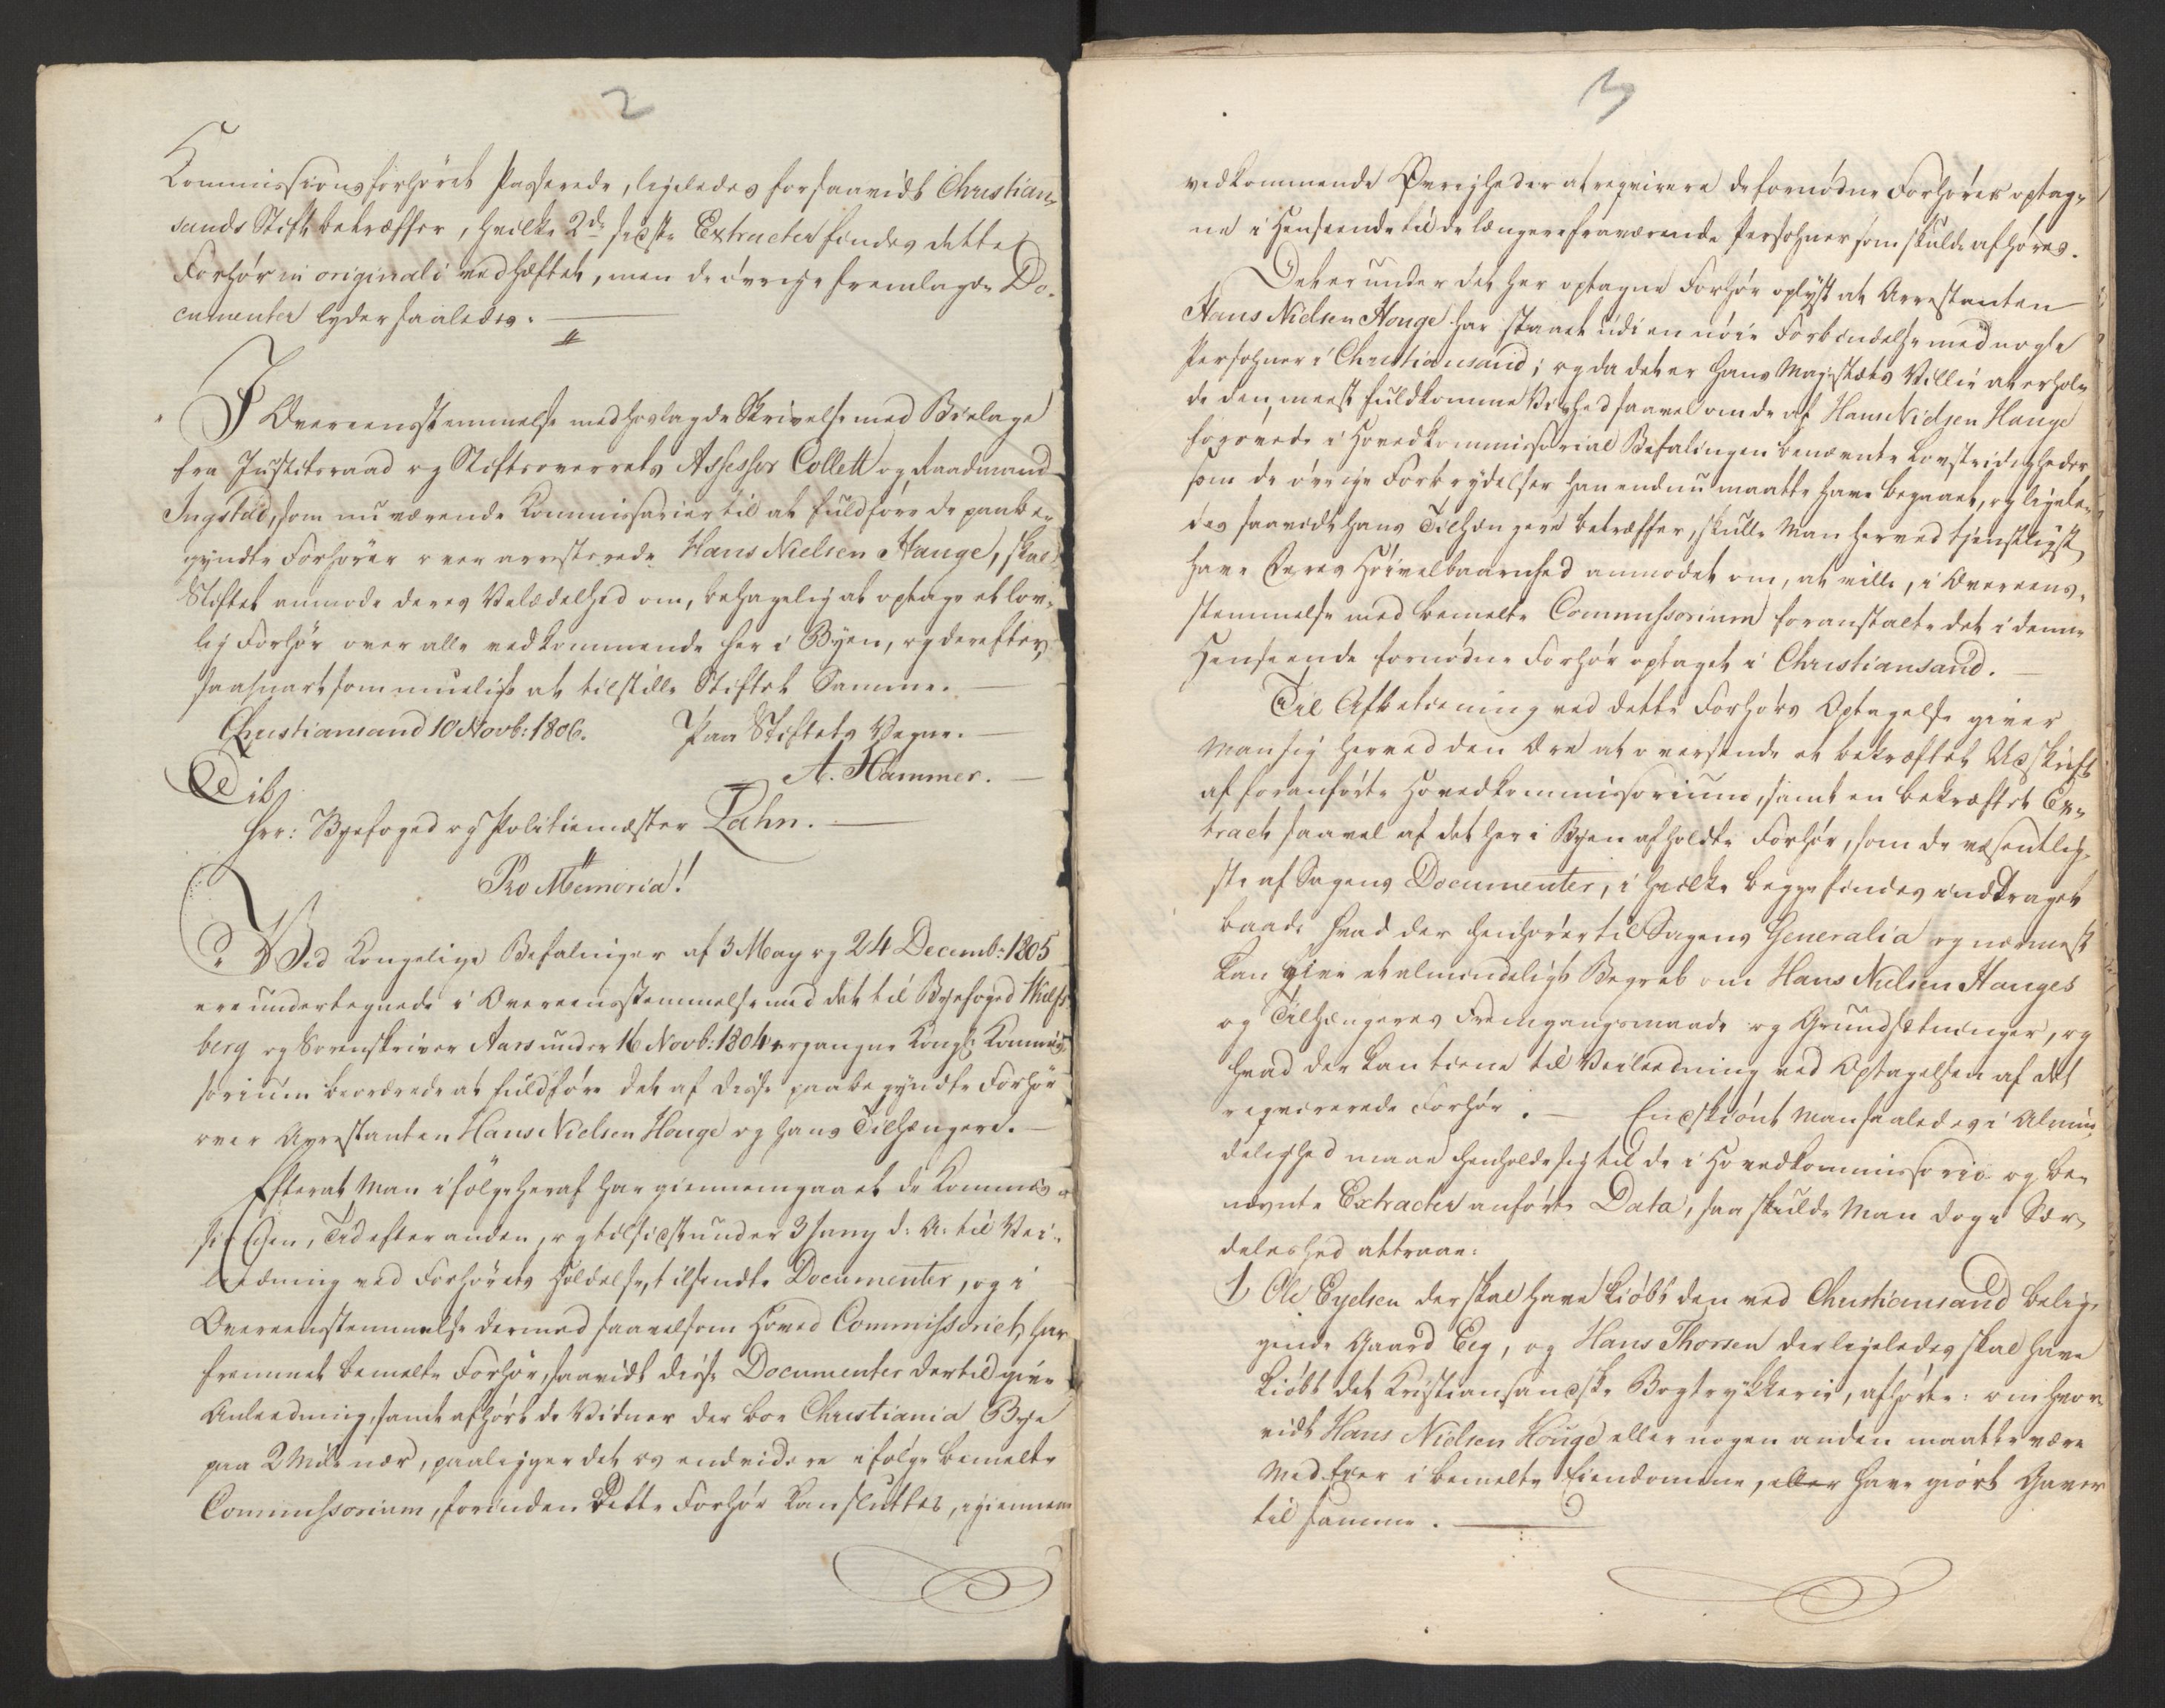 2
Kommissionsforhöret passerede, ligeledes forsaavidt Christian-
sands Stift betræffer, hvilke 2de sidste Extracter findes dette
Forhör in originali vedheftet, men de övrige fremlagde Do-
cumenter lyder saaledes.
I Overeensstemmelse med hoslagde Skrivelse med Bielage
fra Justitsraad og Stiftsoverrets Assessor Collett og Raadmand
Ingstad, som nu værende Kommissarier til at fuldföre de paabe-
gyndte Forhörer over arresterede Hans Nielsen Hauge, skal
Stiftet anmode deres Velædelhed om, behagelig at optage et lov-
lig Forhör over alle vedkommende her i Byen, og derefter
saasnart som mueligt at tilstille Stiftet Samme.
Christiansand 10 Novb: 1806. Paa Stiftets Vegne.
A. Hammer.
Til
Hrr: Byefoged og Politiemester Lahn.
Pro Memoria!
Ved Kongelige Befalinger af 3 May og 24 Decemb: 1805
ere undertegnede i Overeensstemmelse med det til Byefoged Wulfs-
berg og Sorenskriver Aars under 16 Novb: 1804 ergangne Kongl: Kommis-
sorium beordrede at fuldföre det af disse paabegyndte Forhör
over Arrestanten Hans Nielsen Hauge og hans Tilhængere.
Efterat Man ifölge heraf har giennemgaaet de Kommis-
sionen, Tid efter anden, og tilsidst under 3 Juny d: A: til Vei-
ledning ved Forhörets Holdelse, tilsendte Documenter, og i
Overeensstemmelse dermed saavelsom Hoved Commissoriet, har
fremmet bemelte Forhör, saavidt disse Documenter dertil give
Anledning, samt afhört de Vidner der boe Christiania Bye
paa 2 Mile nær, paaligger det os endvidere ifölge bemelte
Commissorium, forinden dette Forhör kan sluttes, igiennem
3
vedkommende Övrigheder at reqvirere de fornödne Forhörer optag-
ne i Henseende til de længere fraværende Personer som skulde afhöres.
Det er under det her optagne Forhör oplyst at Arrestanten
Hans Nielsen Hauge har staaet udi en nöie Forbindelse med nogle
Personer i Christiansand; og da det er Hans Majestæts Villie at erhol-
de den meest fuldkomne Vished saavel om de af Hans Nielsen Hauge
begaaede i Hovedkommissorial Befalingen benævnte Lovstridigheder
som de övrige Forbrydelser han endnu maatte have begaaet, og ligele-
des saavidt hans Tilhængere betræffer, skulle Man herved tjenstligst
have Deres Höivelbaarenhed anmodet om, at ville, i Overeens-
stemmelse med bemelte Commissorium foranstalte det i denne
Henseende fornödne Forhör optaget i Christiansand.
Til Afbetiening ved dette Forhörs Optagelse giver
Man sig herved den Ære at oversende et bekræftet Udskrift
af foranförte Hovedkommissorium, samt en bekræftet Ex-
tract saavel af det her i Byen afholdte Forhör, som de væsentlig-
ste af Sagens Documenter, i hvilke begge findes inddraget
baade hvad der henhörer til Sagens Generalia og nærmest
kan give et almindeligt Begreb om Hans Nielsen Hauges
og Tilhængeres Fremgangsmaade og Grundsetninger, og
hvad der kan tiene til Veiledning ved Optagelsen af det
reqvirerede Forhör. Endskiönt Man saaledes i Almin-
delighed maae henholde sig til de i Hovedkommissorio og be-
nævnte Extracter anförte Data, saa skulde Man dog i Sær-
deleshed attraae:
1 Ole Eyelsen der skal have kiöbt den ved Christiansand belig-
gende Gaard Eeg, og Hans Thorsen der ligeledes skal have
kiöbt det Kristiansandske Bogtrykkerie, afhörte: om hvor-
vidt Hans Nielsen Hauge eller nogen anden maatte være
Med Eier i bemelte Eiendomme, eller have giort Gaver
til samme.